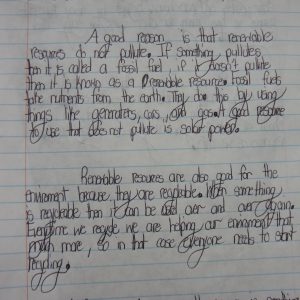 A good reason is that renewable
resources do not pollute. If something pollutes
then it is called a fossil fuel, if it doesn't pollute
then it is known as a renewable resource. Fossil fuels
take nutrients from the earth. They do this by using
things like generators, cars, and gas. A good resource
to use that does not pollute is solar power.
Renewable resources are also good for the
enviroment because, they are recyclable. When something
is recyclable than it can be used over and over again.
Everytime we recycle we are helping our enviroment that
much more, so in that case everyone needs to start
recycling.